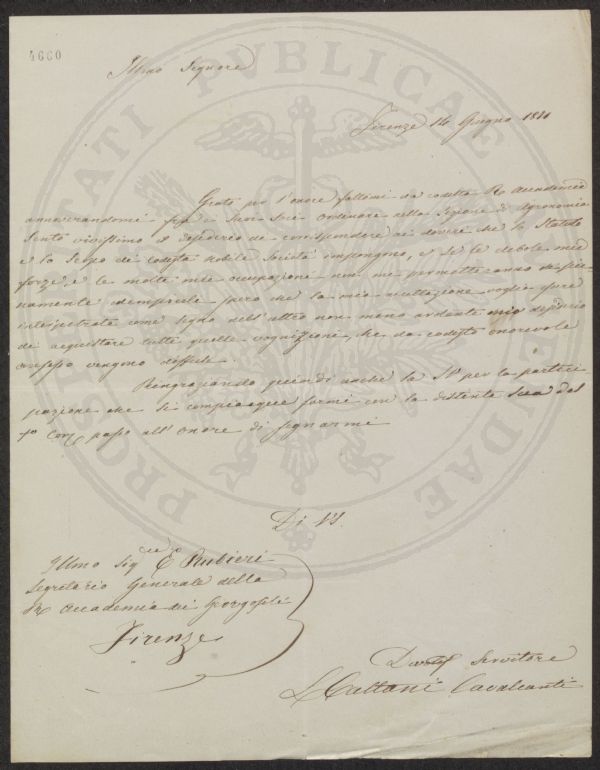 4660
Illmo Signore
Firenze 14 Giugno 18
Grato per l'onore fattomi da codesta R. Accademia
annoverandomi fra i suoi Soci Ordinari nella Sezione di Agronomia
sento vivissimo il desiderio di corrispondere ai doveri che lo Statuto
e lo Scopo di codesta nobile Società impongono, e se le debole mie
forze, e le molte mie occupazione non me permetteranno di pie-
namente adempirli spero che la mia accettazione voglia fare
interpetrata come segno dell'altro non meno ardente mio desiderio
di acquistare tutte quelle cognizioni, che da codesto onorevole
consesso vengono diffuse.
Ringraziando quindi anche la SV per la parteci
pazione che si compiacque farmi con la distinta sua del
po Core passo all'onore di segnarmi
Di VS.
Illmo Sig E Rubieri
Segretario Generale della
R Accademia dei Georgofili
Firenze
Devmo Servitore
L Cattani Cavalcanti
PROSPERITATI PVBLICAE AVGENDAE